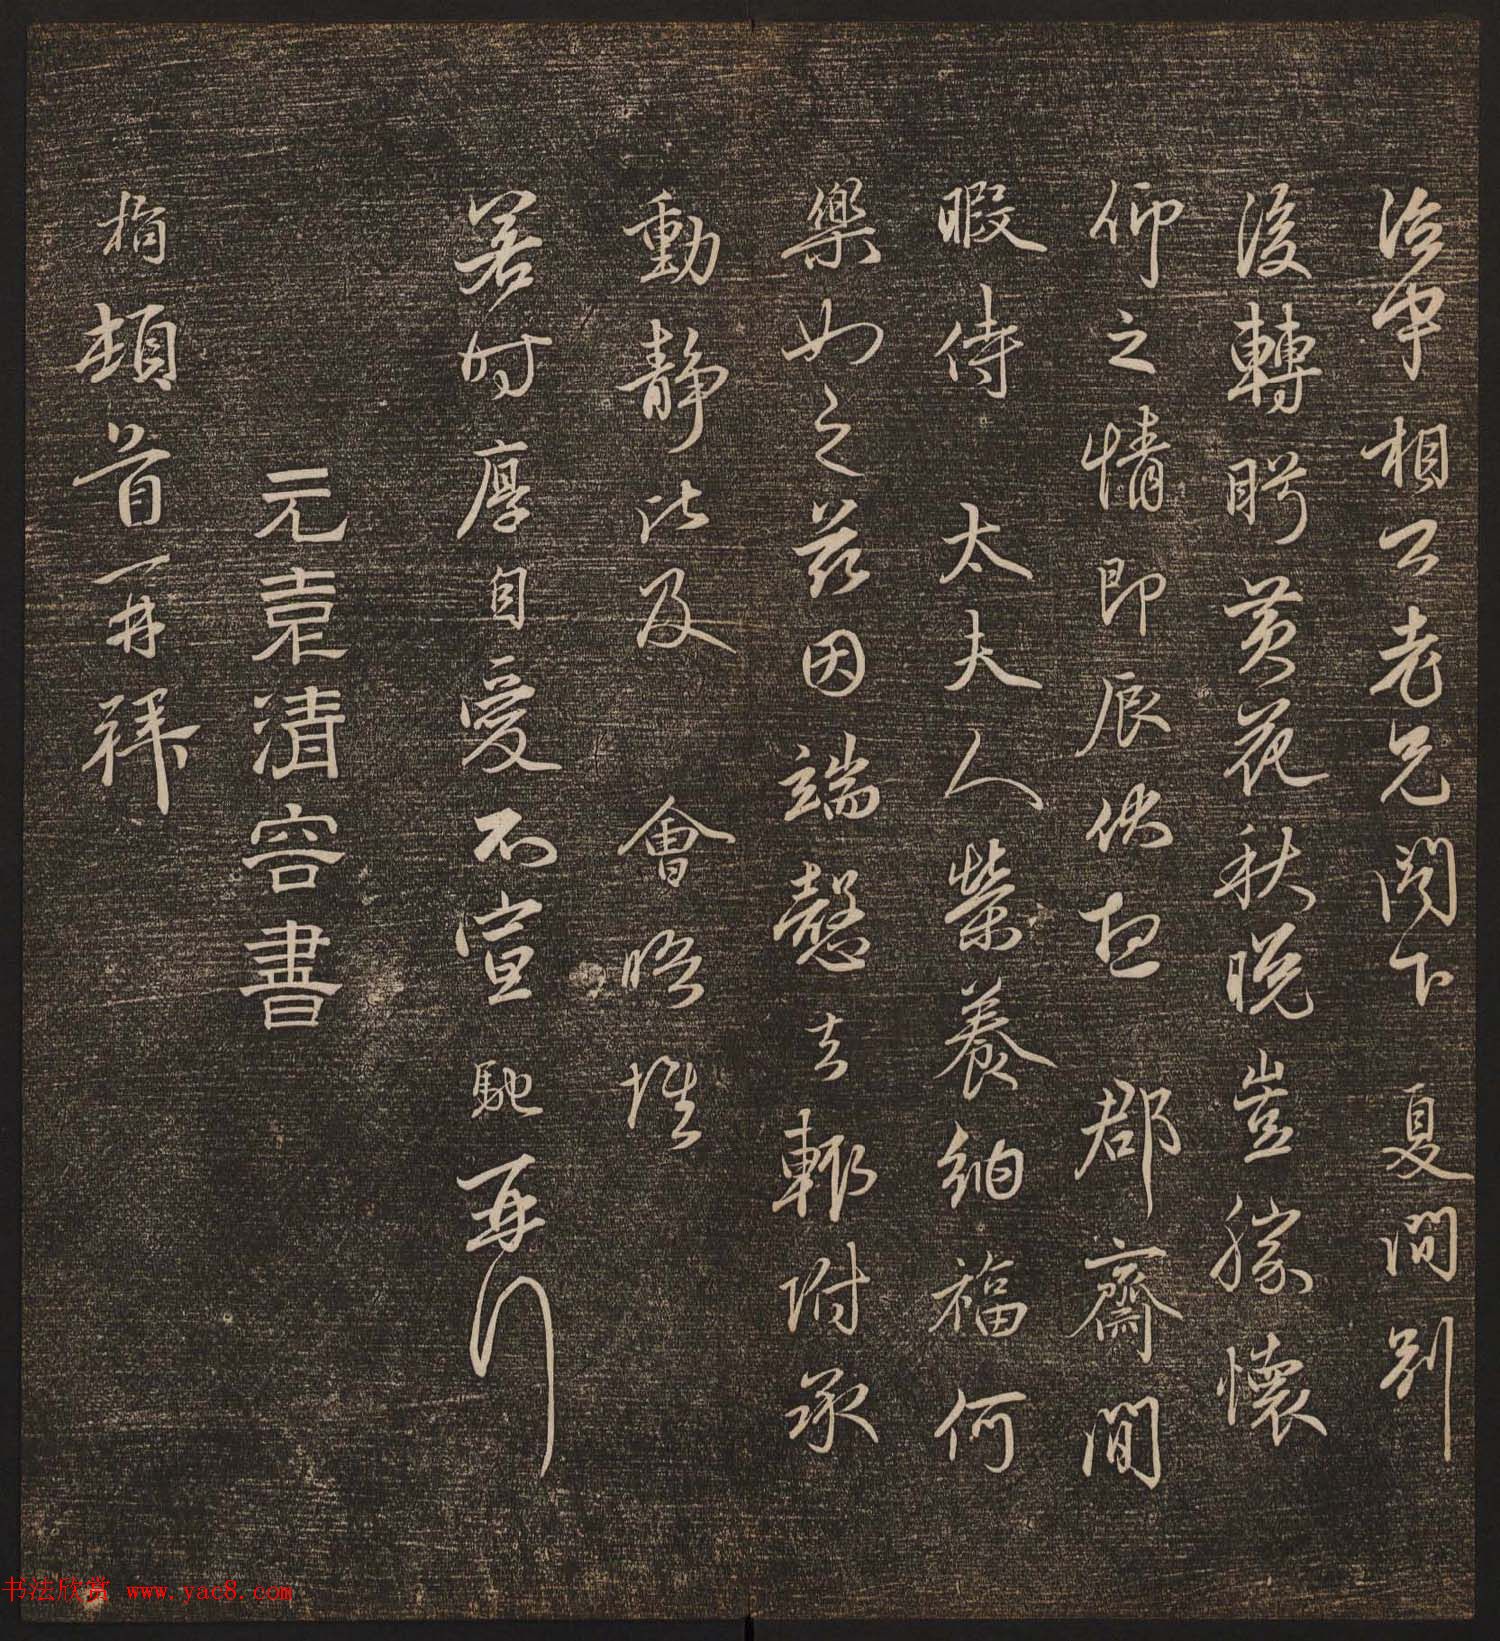 治中相公老兄閣下 夏間別
後轉盻黃花秋晚豈勝懷
仰之情即辰伏惟 郡齋閒
暇侍 太夫人榮養納福何
樂如之茲因端慤去輒附承
動靜比及 會晤惟
若時厚自愛不宣 馳再行
元袁清容書
桷頓首再拜
书法欣赏 www.yac8.com